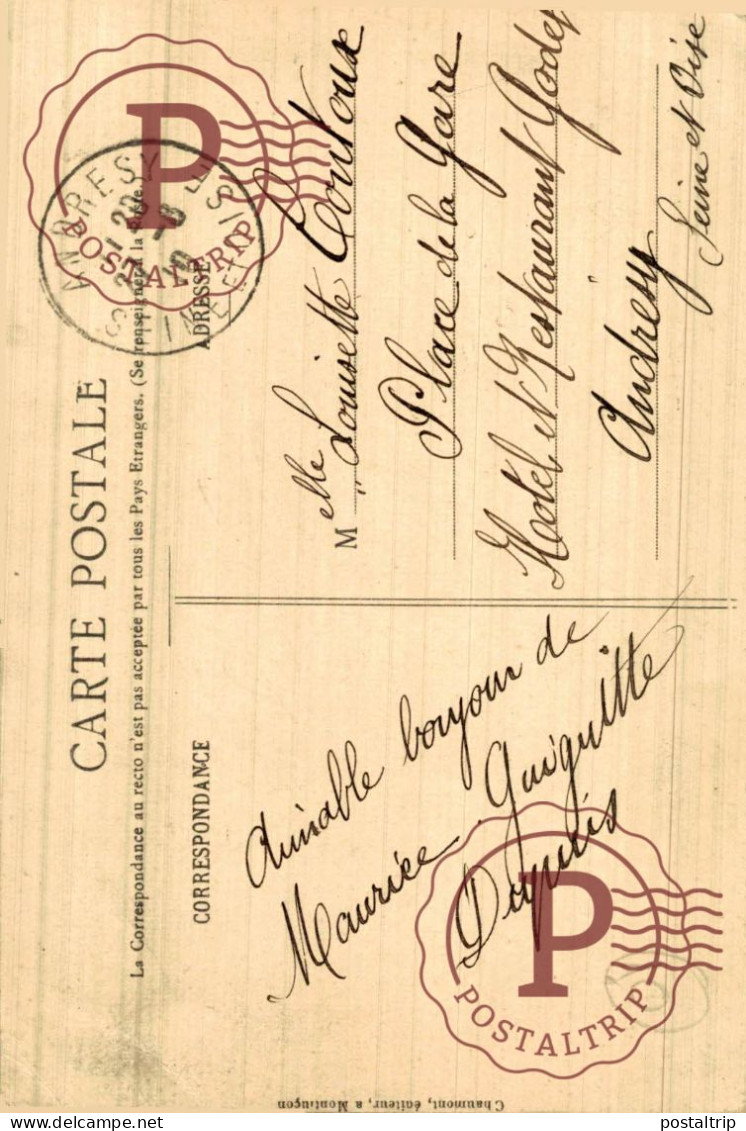 CARTE POSTALE
La Correspondance au recto n'est pas acceptée par tous les Pays Etrangers. (Se renseigner à la Poste
CORRESPONDANCE
Aimable bonjour de
Maurice Guiguitte
Dupuis
ADRESSE
Melle Louisette Coutoux
Place de la Gare
Hotel et Restaurant Godef
Andresy
Seine et Oise
ANDRESY
SEINE ET OISE
Chaumont, éditeur, a Montluçon
P
POSTALTRIP
P
POSTALTRIP
postaltrip
delcampe.net